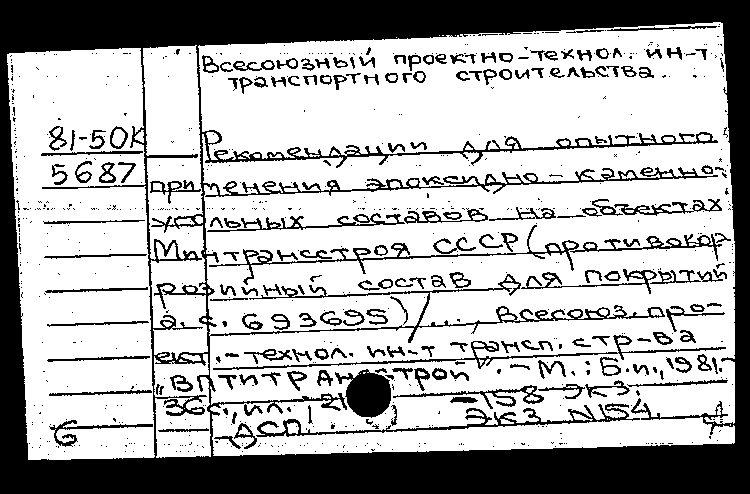 Всесоюзный проектно-технол. ин-т
транспортного строительства.
81-50К
5687
Рекомендации для опытного
применения эпоксидно-каменно-
угольных составов на объектах
Минтрансстроя СССР (противокор-
розийный состав для покрытий
а.с. 693695)/..., Всесоюз. про-
ект.-технол. ин-т трансп. стр-ва
"ВПТИТРАНССТРОЙ". - М.: Б.и., 1981.-
36с., ил.; 21 -158 экз.
ДСП. экз. N154.
6